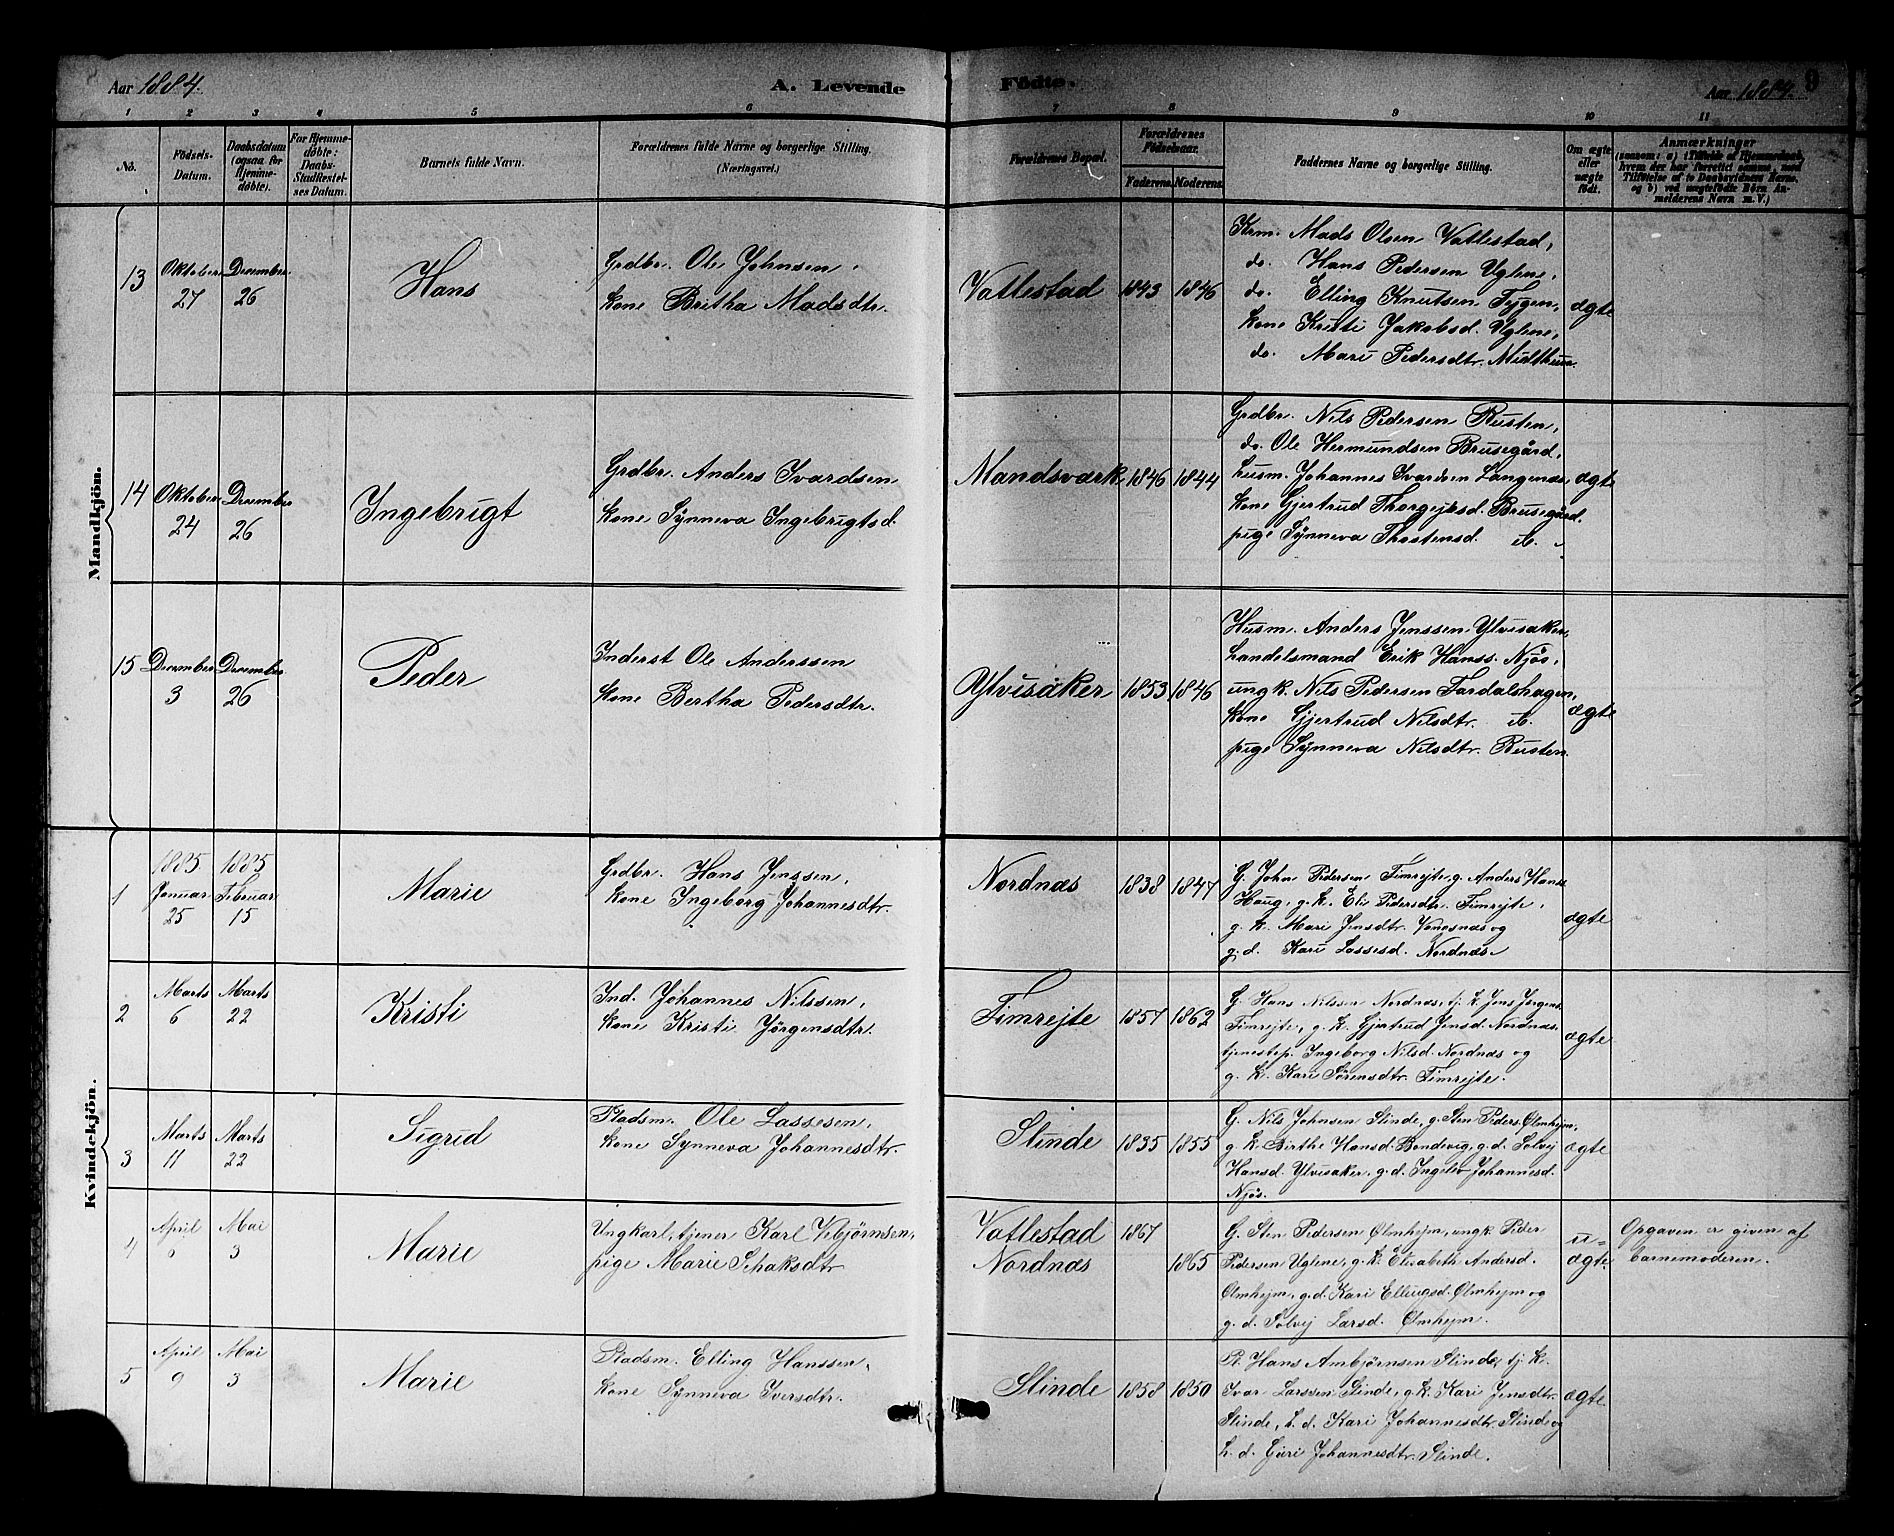 Aar 1884.
A. Levende Födte.
Aar 1884. 9
1 2 3 4 5 6 7 8 9 10 11
No.
Födsels-Datum.
Daabsdatum (ogsaa for Hjemmedøbte).
For Hjemmedøbte: Daabs-Stadfæstelses Datum.
Barnets fulde Navn.
Forældrenes fulde Navne og borgerlige Stilling. (Næringsvei.)
Forældrenes Bopæl.
Forældrenes Födselsaar.
Faderens. Moderens.
Faddernes Navne og borgerlige Stilling.
Om ægte eller uægte födt.
Anmærkninger
(saasom: a) i Tilfælde af Hjemmedaab, hvem der har forrettet samme, med Tilföielse af to Daabsvidners Navne, og b) ved uægtefödte Börn Anmelderens Navn m. V.)
Mandkjön.
13
Oktober 27
December 26
Hans
Grdbr. Ole Johnsen,
Kone Britha Madsdtr.
Vatlestad
1843 1846
Krm. Mads Olsen Vatlestad,
do. Hans Pedersen Uglene,
do. Elling Knutsen Tygen,
Kone Kristi Jakobsd. Uglene,
do. Mari Pedersdtr.
ægte
14
Oktober 24
December 26
Ingebrigt
Grdbr. Anders Ivardsen
Kone Synneva Ingebrigtsd.
Mandsværk
1846 1844
Grdbr. Nils Pedersen Rusten,
do. Ole Hermundsen Brusegård,
husm. Johannes Ivardsen
Kone Gjertrud Brusegård.
pige Synneva Thostensd. ib.
ægte
15
December 3
December 26
Peder
Inderst Ole Anderssen
Kone Bertha Pedersdtr.
Ylvisaker
1853 1846
Husm. Anders Jenssen Ylvisaker,
handelsmand Erik Hanss. Njøs,
ungk. Nils Pedersen Fardalshagen,
Kone Gjertrud Nilsdtr. ib.
pige Synneva Nilsdtr. Rusten.
ægte
Kvindekjön.
1
1885 Januar 25
1885 Februar 15
Marie
Grdbr. Hans Jenssen,
Kone Ingeborg Johannesdtr.
Nordnæs
1838 1847
G. John Pedersen Fimrejte, g. Anders Hanss.
Haug, g. k. Eli Pedersdtr. Fimrejte,
g. k. Mari Jensdtr. Vangsnæs og
g. d. Kari Lassesd. Nordnæs.
ægte
2
Marts 6
Marts 22
Kristi
Ind. Johannes Nilssen,
Kone Kristi Jørgensdtr.
Fimrejte
1857 1862
G. Hans Nilssen Nordnæs, tj. k. Jens Jørgens.
Fimrejte, g. k. Gjertrud Jensd. Nordnæs,
tjenestep. Ingeborg Nilsd. Nordnæs og
g. k. Kari Sørensdtr. Fimrejte.
ægte
3
Marts 11
Marts 22
Sigrid
Pladsm. Ole Lassesen,
Kone Synneva Johannesdtr.
Slinde
1835 1855
G. Nils Johnsen Slinde, g. Sten Peders. Ølmhejm,
g. k. Birthe Hansd. Bondevig, g. d. Solvej
Hansd. Ylvisaker, g. d. Ingelev Johannesd.
Njøs.
ægte
4
April
Mai 3
Marie
Ungkarl, tjener Karl Vebjørnsen,
pige Marie Schaksdtr
Vatlestad
Nordnæs
1867
1865
G. Sten Pedersen Ølmhejm, ungk. Peder
Pedersen Uglene, g. k. Elisabeth Andersd.
Ølmhejm, g. d. Kari Ellingsd. Ølmhejm og
g. d. Solvej Larsd. Ølmhejm.
u-ægte.
Opgaven er given af
barnemoderen.
5
April 9
Mai 3
Marie
Pladsm. Elling Hanssen,
Kone Synneva Iversdtr.
Slinde
1858 1850
Pl. Hans Ambjørnsen Slinde, tj. k.
Ivar Larssen Slinde, g. k. Kari Jensdtr.
Slinde, h. d. Kari Johannesdtr. Slinde og
h. d. Guri Johannesdtr. Slinde.
ægte.